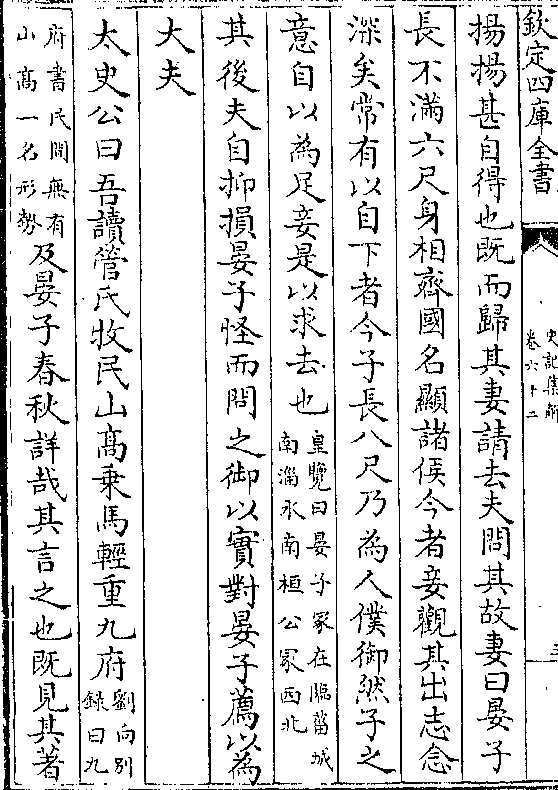 欽定四庫全書
史記集解
卷六十二
三
揚揚甚自得也既而歸其妻請去夫問其故妻曰晏子
長不滿六尺身相齊國名顯諸侯今者妾觀其出志念
深矣常有以自下者今子長八尺乃為人僕御然子之
意自以為足妾是以求去也
皇覽曰晏子冢在臨菑城
南淄水南桓公冢西北
其後夫自抑損晏子怪而問之御以實對晏子薦以為
大夫
太史公曰吾讀管氏牧民山高乗馬輕重九府
劉向别
録曰九
府書民間無有
山高一名形勢
及晏子春秋詳哉其言之也既見其著